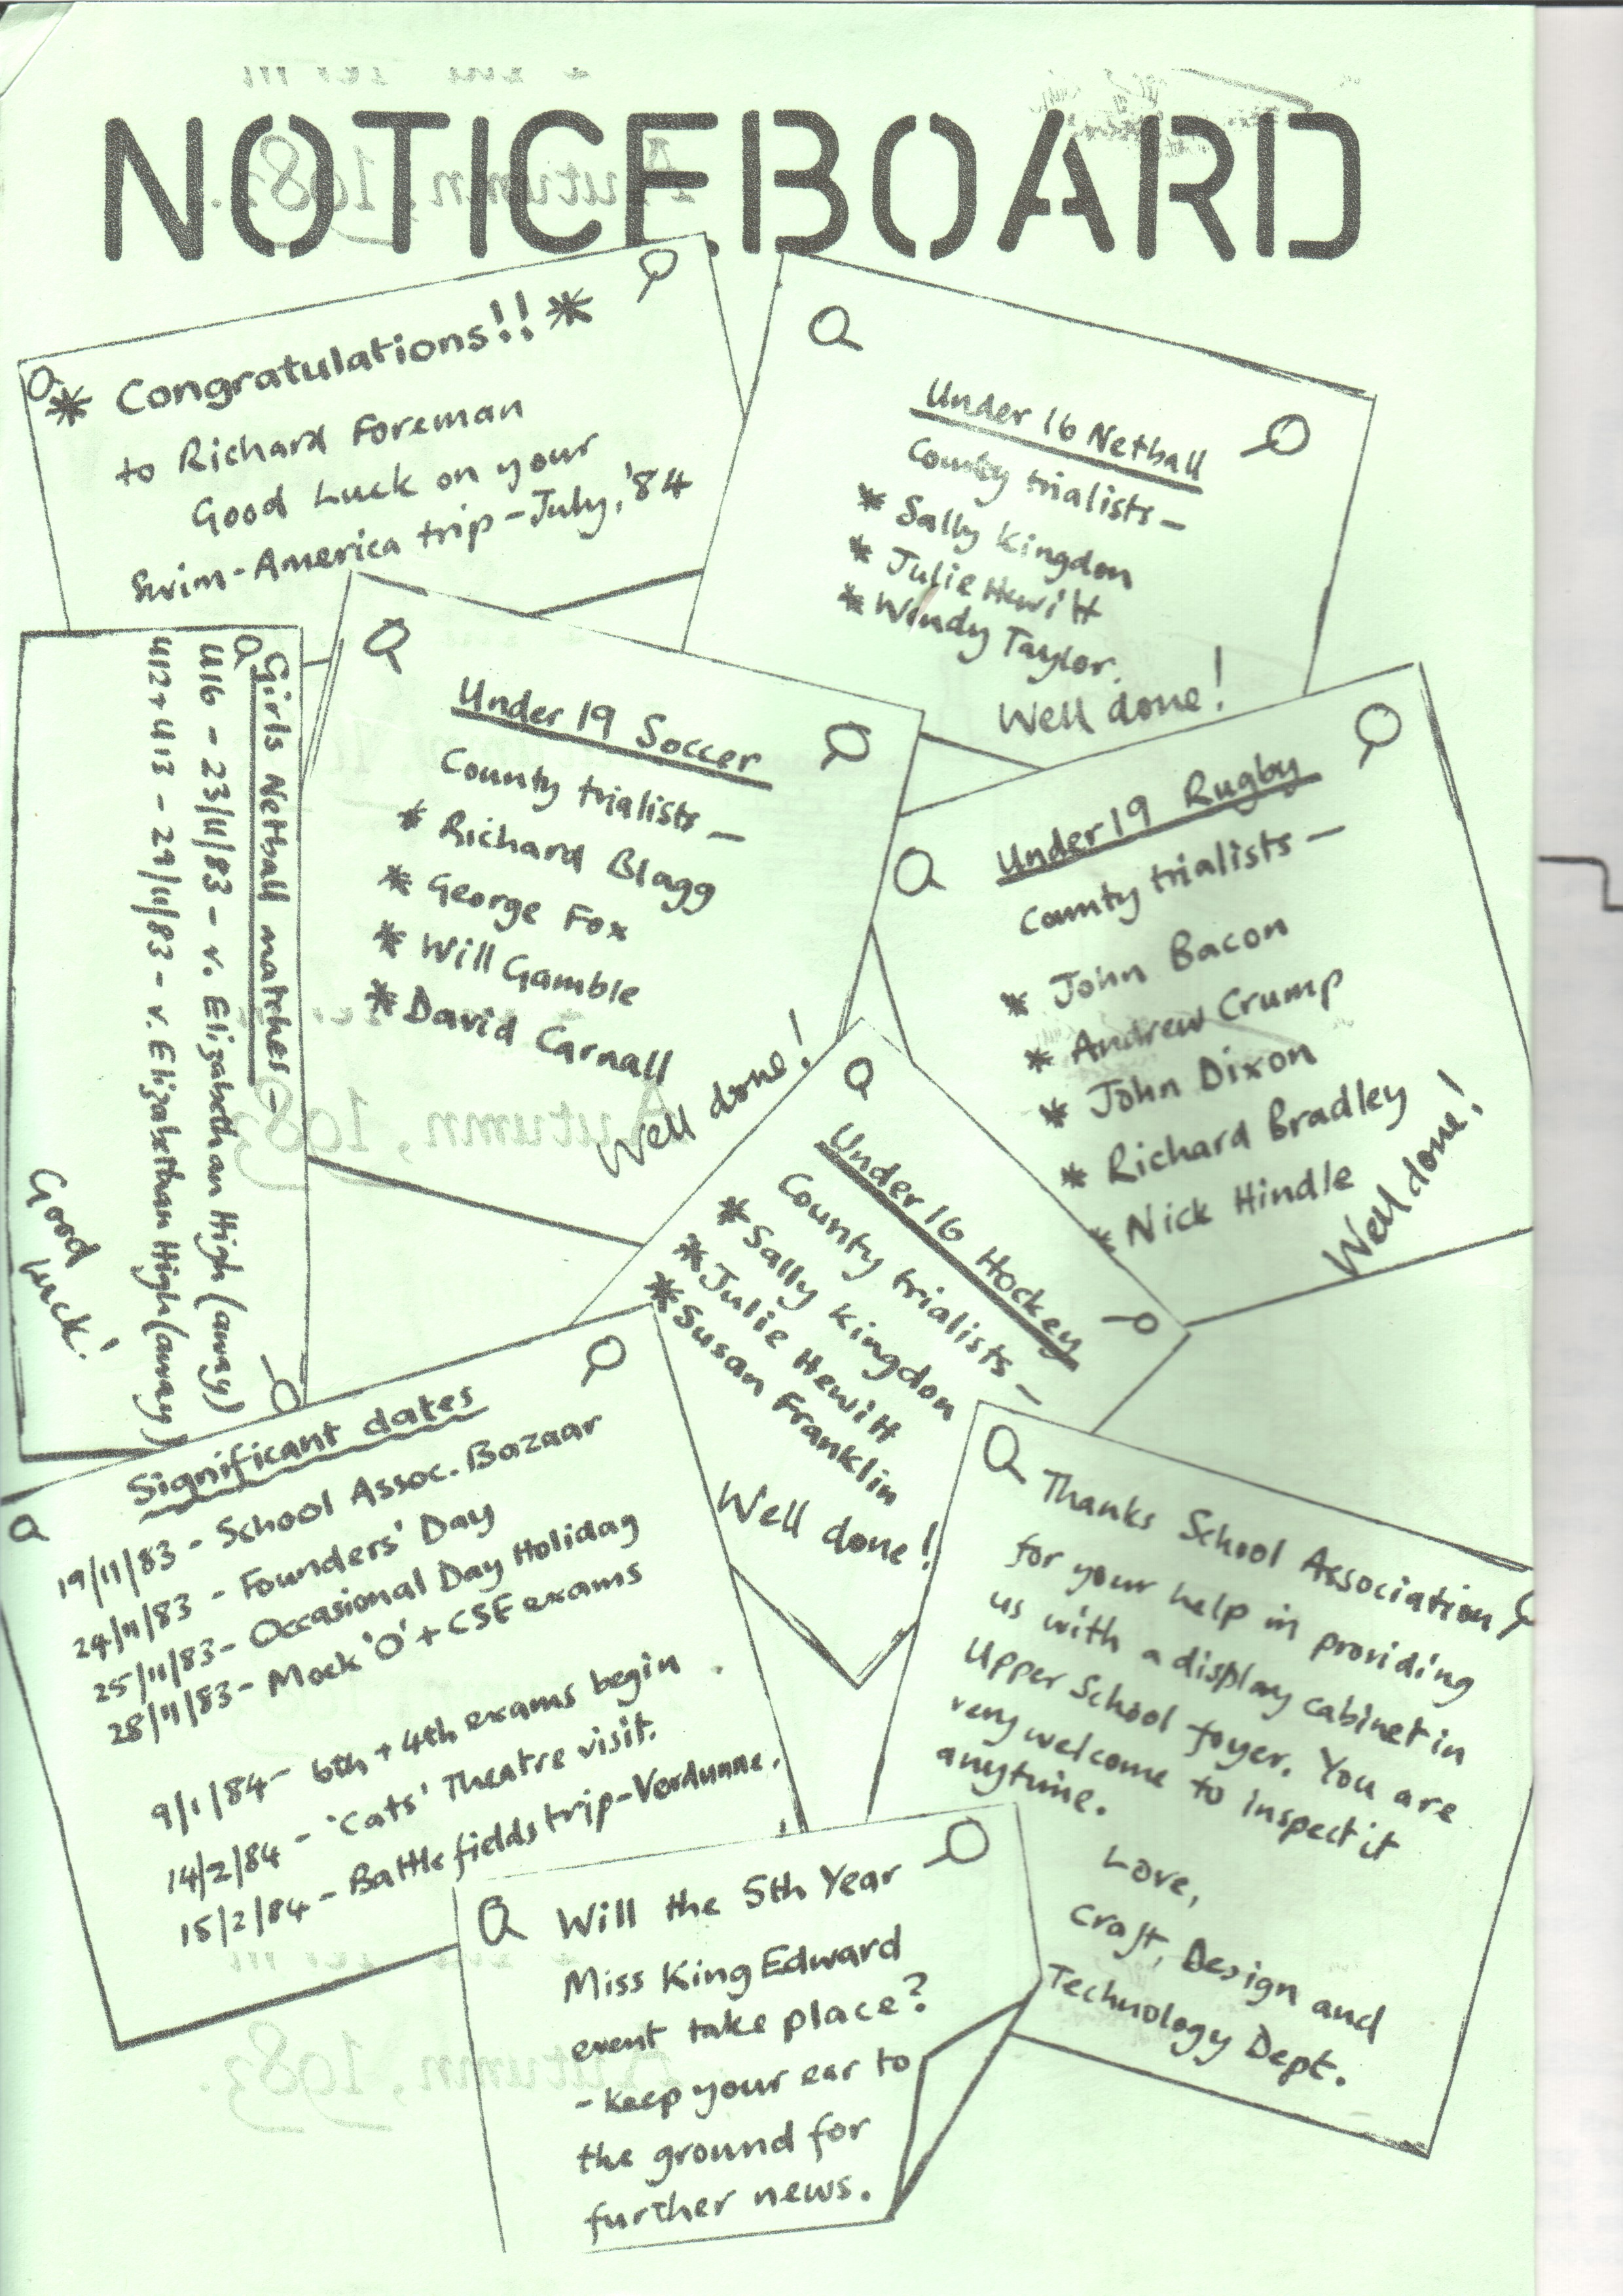 NOTICEBOARD
* Congratulations!! *
to Richard Foreman
Good Luck on your
Swim-America trip - July, '84
Under 16 Netball
County trialists -
* Sally Kingdon
* Julie Hewitt
* Wendy Taylor.
Well done!
Girls Netball matches -
U16 - 23/11/83 - v. Elizabethan High (away)
U12 + U13 - 29/11/83 - v. Elizabethan High (away)
Good
Luck!
Under 19 Soccer
County trialists -
* Richard Blagg
* George Fox
* Will Gamble
* David Carnall
Well done!
Under 19 Rugby
County trialists -
* John Bacon
* Andrew Crump
* John Dixon
* Richard Bradley
* Nick Hindle
Well done!
Under 16 Hockey
County trialists -
* Sally Kingdon
* Julie Hewitt
* Susan Franklin
Well done!
Significant dates
19/11/83 - School Assoc. Bazaar
24/11/83 - Founders' Day
25/11/83 - Occasional Day Holiday
28/11/83 - Mock 'O' + CSE exams
9/1/84 - 6th + 4th exams begin
14/2/84 - 'Cats' Theatre visit.
15/2/84 - Battlefields trip - Verdunne.
Thanks School Association
for your help in providing
us with a display cabinet in
Upper School foyer. You are
very welcome to inspect it
anytime.
Love,
Craft, Design and
Technology Dept.
Will the 5th Year
Miss King Edward
event take place?
- keep your ear to
the ground for
further news.
Autumn, 1983
Autumn, 1983
Autumn, 1983.